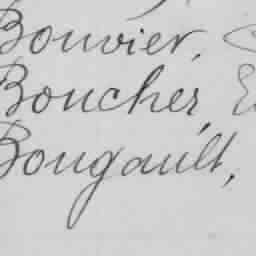 Bouvier,
Boucher,
Bougault,